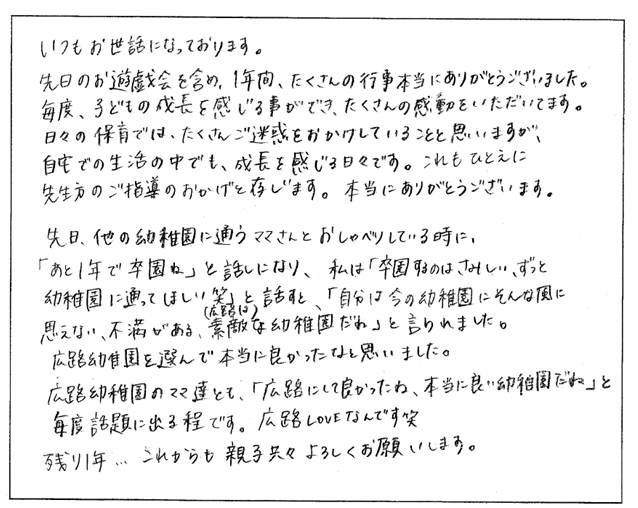 いつもお世話になっております。
先日のお遊戯会を含め、1年間、たくさんの行事本当にありがとうございました。
毎度、子どもの成長を感じる事ができ、たくさんの感動をいただいてます。
日々の保育では、たくさんご迷惑をおかけしていることと思いますが、
自宅での生活の中でも、成長を感じる日々です。これもひとえに
先生方のご指導のおかげと存じます。本当にありがとうございます。
先日、他の幼稚園に通うママさんとおしゃべりしている時に、
「あと1年で卒園ね」と話しになり、私は「卒園するのはさみしい、ずっと
幼稚園に通ってほしい笑」と話すと、「自分は今の幼稚園にそんな風に
思えない、不満がある、(広路は)素敵な幼稚園だね」と言われました。
広路幼稚園を選んで本当に良かったなと思いました。
広路幼稚園のママ達とも、「広路にして良かったね、本当に良い幼稚園だね」と
毎度話題に出る程です。広路LOVEなんです笑
残り1年… これからも親子共々よろしくお願いします。